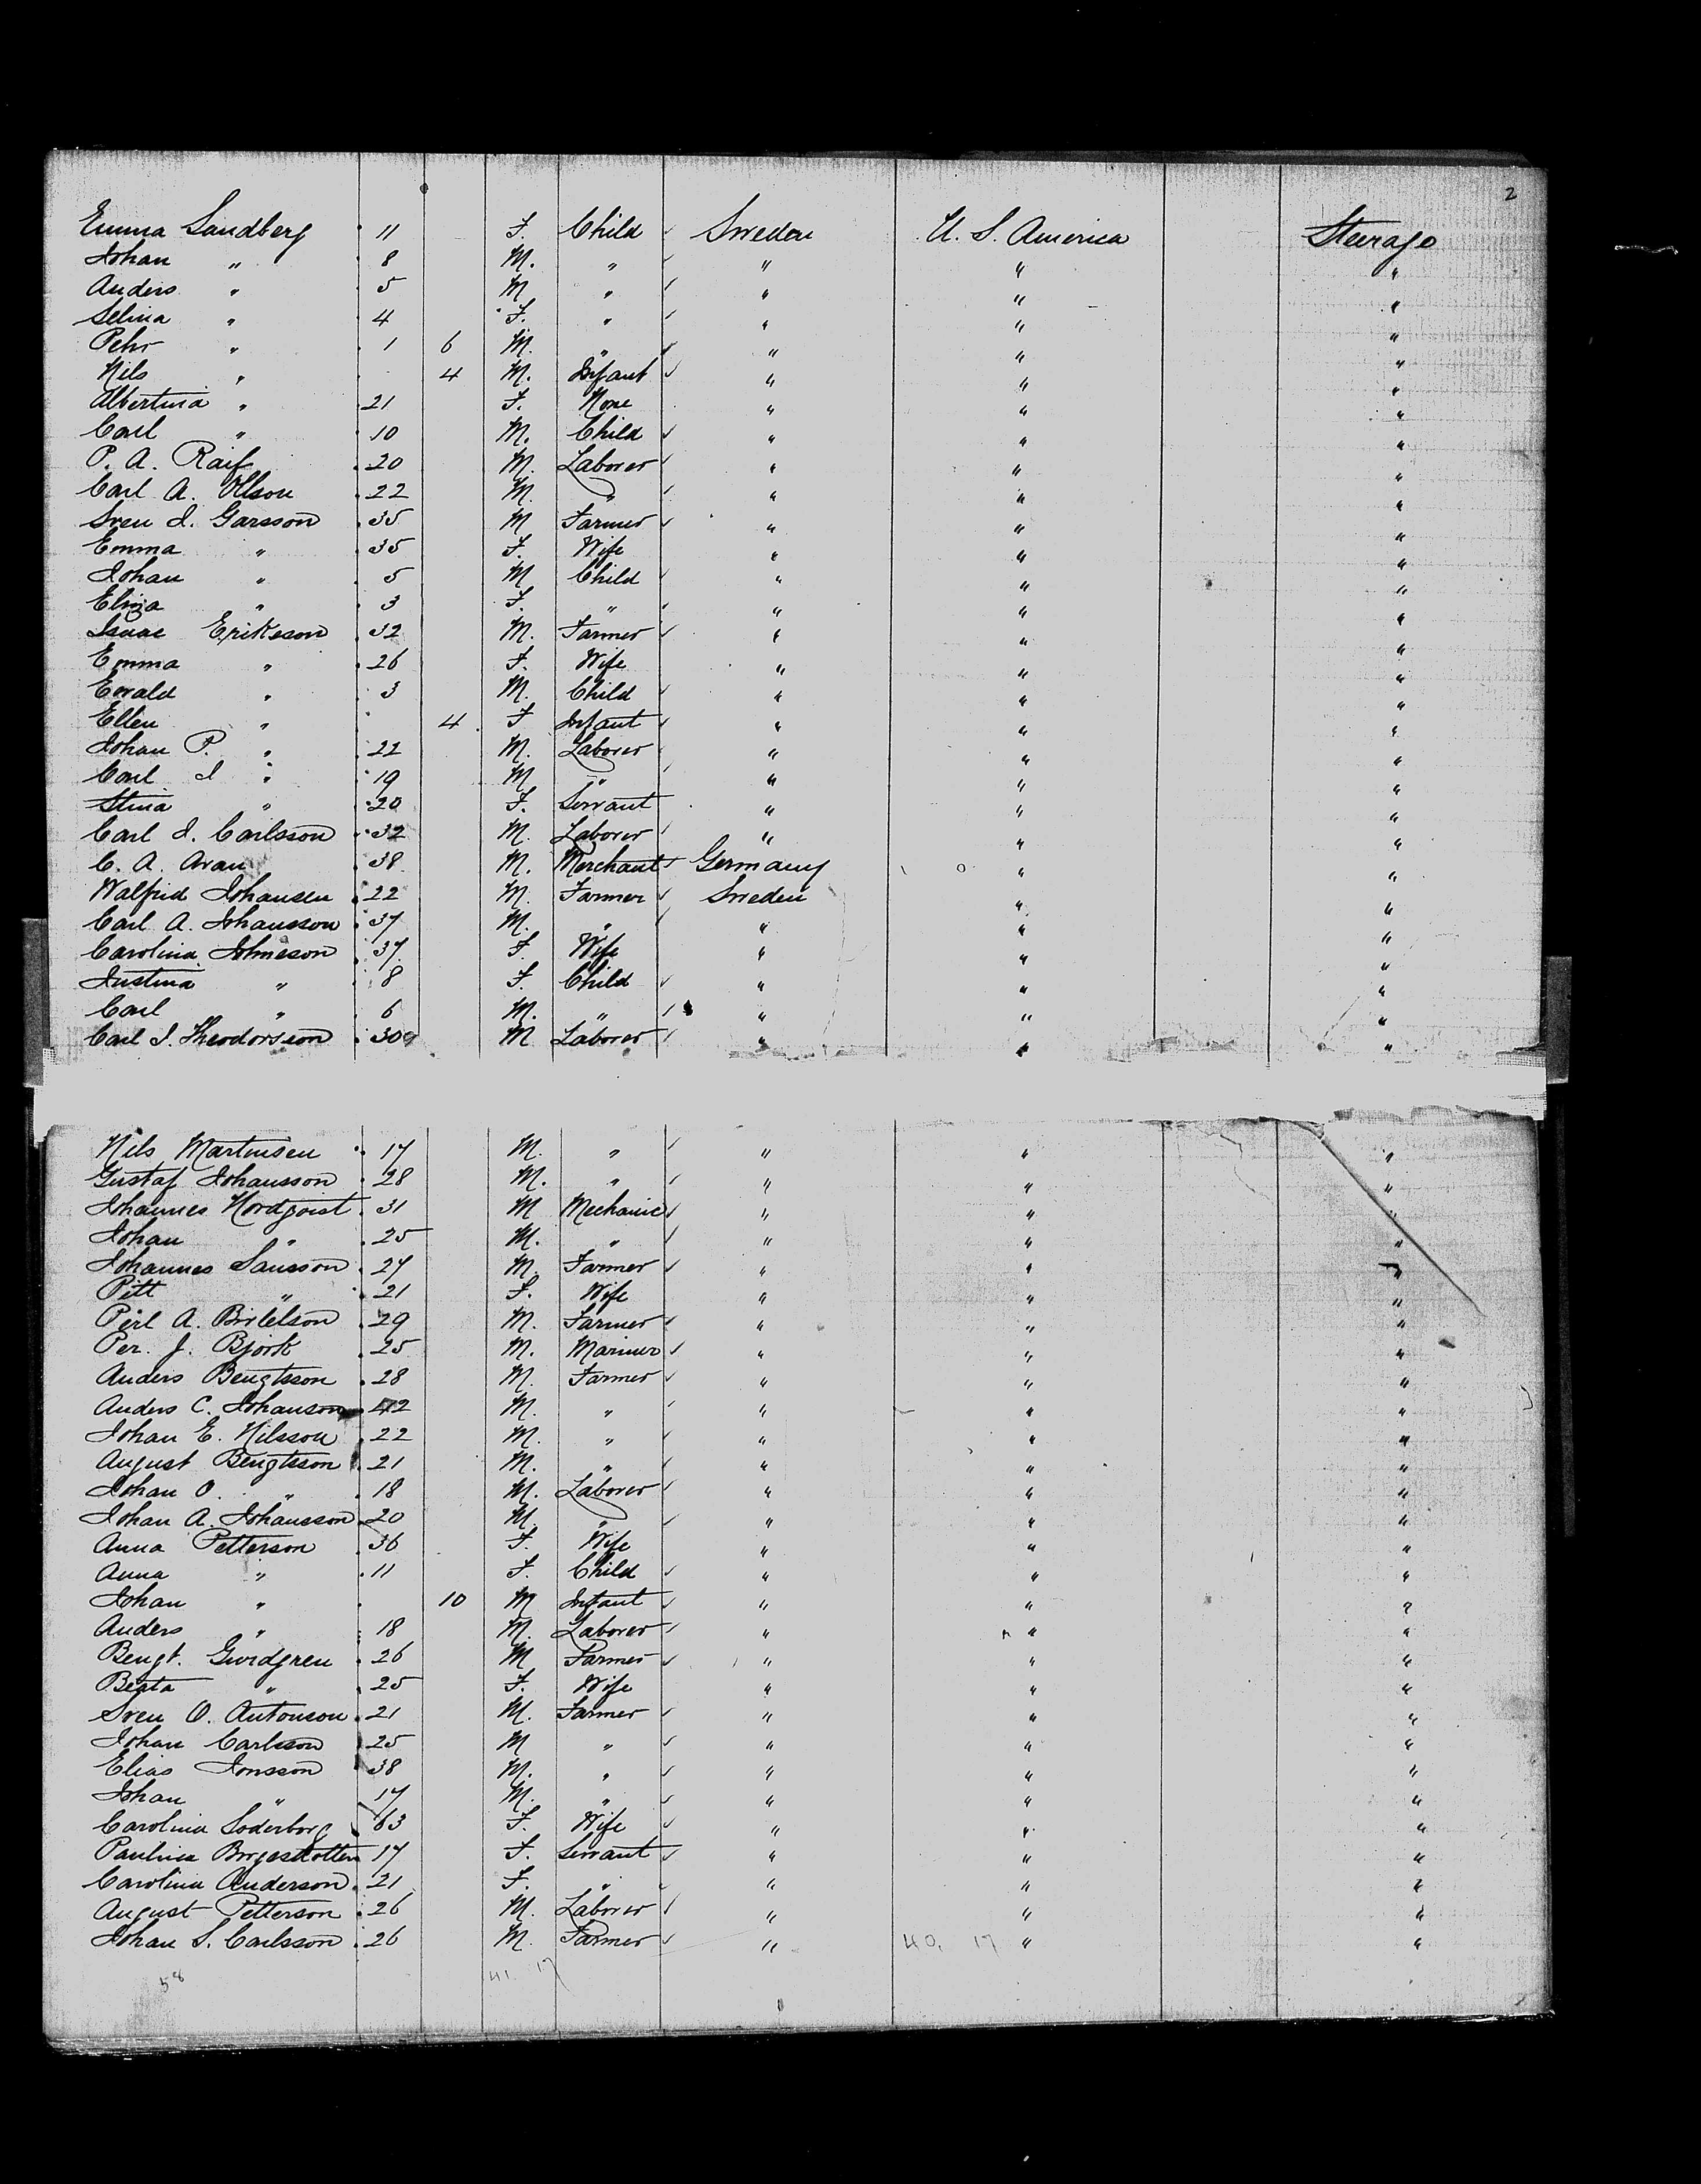 2
Emma Sandberg 11 F. Child Sweden U. S. America Steerage
Johan " 8 M. " " " "
Anders " 5 M " " " "
Selina " 4 F. " " " "
Pehr " 1 6 M. " " " "
Nils " 4 M. Infant " " "
Albertina " 21 F. None " " "
Carl " 10 M. Child " " "
P. A. Raif 20 M. Laborer " " "
Carl A. Ollson 22 M. " " " "
Sven J. Garsson 35 M Farmer " " "
Emma " 35 F. Wife " " "
Johan " 5 M Child " " "
Eliza " 3 F. " " " "
Isaac Erikeson 32 M. Farmer " " "
Emma " 26 F. Wife " " "
Ewald " 3 M. Child " " "
Ellen " 4 F Infant " " "
Johan P. " 22 M. Laborer " " "
Carl J " 19 M " " " "
Stina " 20 F. Servant " " "
Carl J. Carlsson 32 M. Laborer " " "
C. A. Aran 38 M. Merchant Germany " "
Walfrid Johansen 22 M. Farmer Sweden " "
Carl A. Johansson 37 M. " " " "
Carolina Johneson 37 F. Wife " " "
Justina " 8 F. Child " " "
Carl " 6 M. " " " "
Carl J. Theodorsson 30 M Laborer " " "
Nils Martinsen 17 M. " " " "
Gustaf Johansson 28 M. " " " "
Johannes Nordqvist 31 M Mechanic " " "
Johan " 25 M. " " " "
Johannes Sansson 27 M. Farmer " " "
Pitt " 21 F. Wife " " "
A. 29 M. Farmer " " "
Per. J. Bjork 25 M. Mariner " " "
Anders Bengtsson 28 M. Farmer " " "
Anders C. Johanson 42 M. " " " "
Johan E. Nilsson 22 M. " " " "
August Bengtsson 21 M. " " " "
Johan O. " 18 M. Laborer " " "
Johan A. Johansson 20 M. " " " "
Anna Petterson 36 F. Wife " " "
Anna " 11 F. Child " " "
Johan " 10 M Infant " " "
Anders " 18 M. Laborer " " "
Bengt. 26 M Farmer " " "
Beata " 25 F. Wife " " "
Sven O. Antonson 21 M. Farmer " " "
Johan Carlsson 25 M " " " "
Elias Jonsson 38 M. " " " "
Johan " 17 M. " " " "
Carolina Soderborg 63 F. Wife " " "
Paulina 17 F. Servant " " "
Carolina Anderson 21 F. " " " "
August Petterson 26 M. Laborer " " "
Johan S. Carlsson 26 M. Farmer " 40. 17 " "
58 41. 17